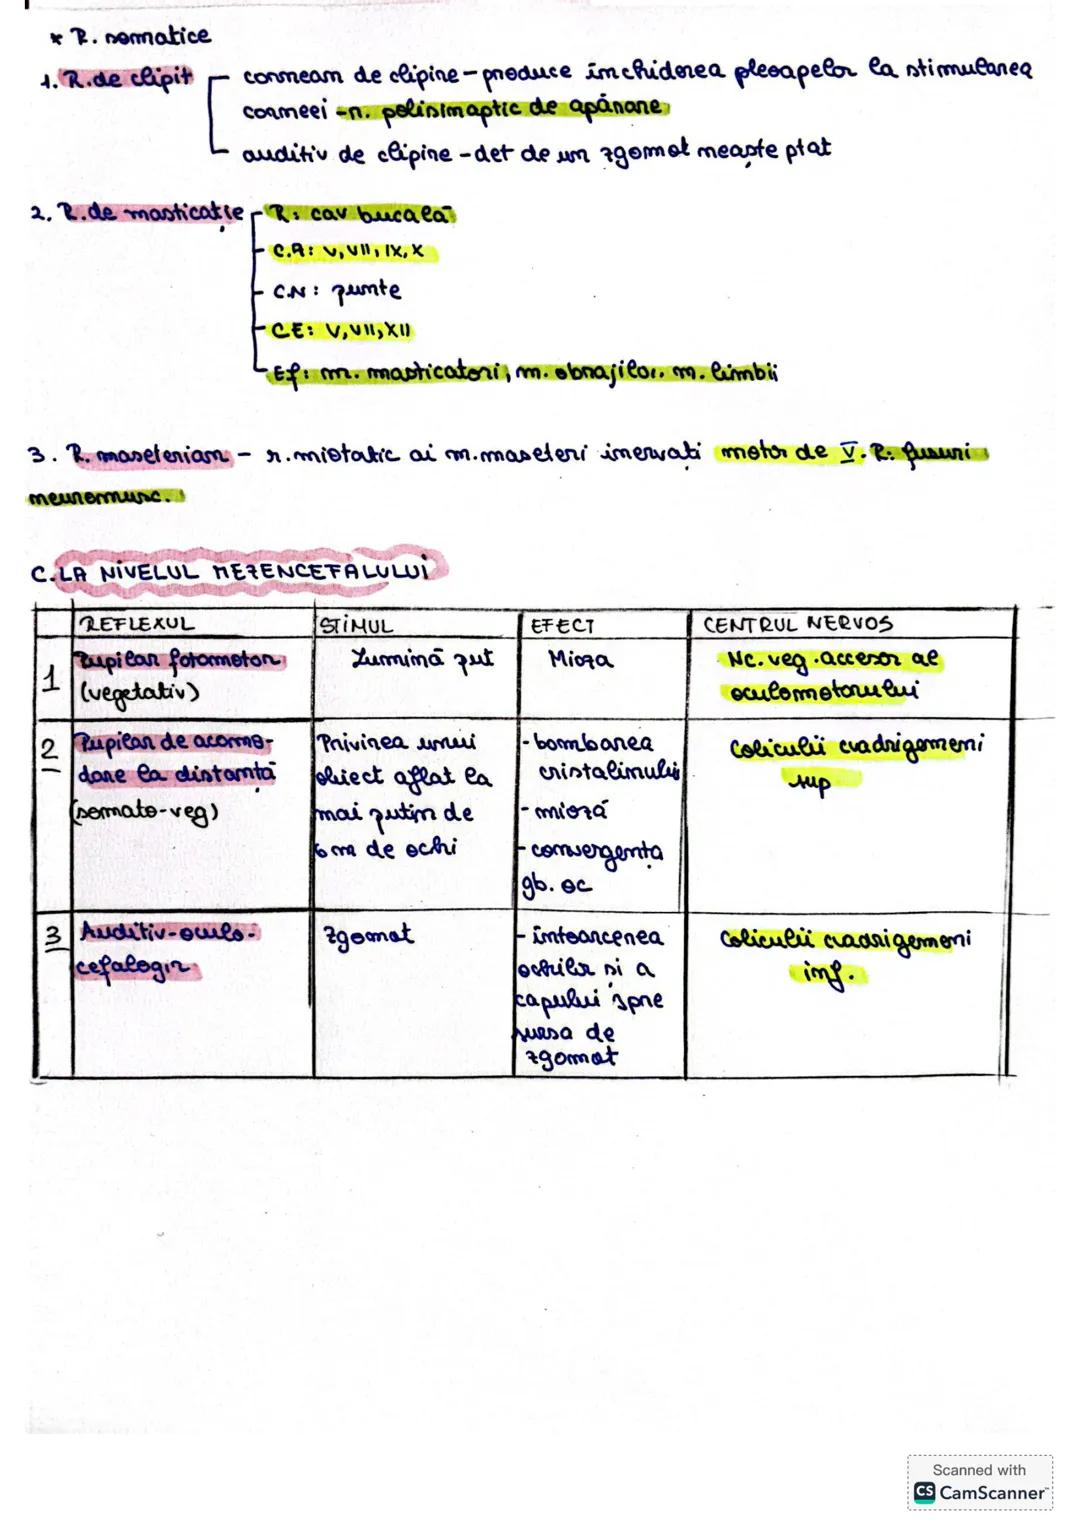 * R. somatice
1. R. de clipit
cornean de clipire - produce închiderea pleoapelor la stimularea
corneei - r. polisinaptic de apărare
auditiv de clipire - det de un zgomot neaștептat
2. R. de masticație
R: cav bucală
C.A: V, VII, IX, X
C.N: punte
C.E: V, VII, XII
Ef: m. masticatori, m. obrajilor. m. limbii
3. R. maseterian - r. miotatic ai m. maseteri inervați motor de V. R: fusuri
neuromusc.
C. LA NIVELUL MEZENCEFALULUI
REFLEXUL STIMUL EFECT CENTRUL NERVOS
1 Pupilar fotomotor Lumină put Mioza Nc. veg. accesor al
(vegetativ) oculomotorului
2 Pupilar de acomo- Privirea unui - bombarea Coliculii cvadrigemeni
dare la distanță obiect aflat la cristalinului sup
(somato-veg) mai puțin de - mioză
6 m de ochi - convergența
gb. oc
3 Auditiv-oculo- Zgomot - întoarcerea Coliculii cvadrigemeni
cefalogir ochilor si a inf.
capului spre
sursa de
zgomot
Scanned with
CS CamScanner